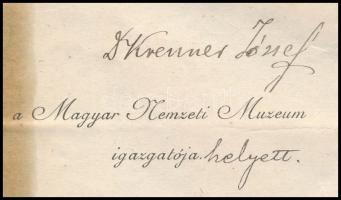 Dr Krenner József
a Magyar Nemzeti Muzeum
igazgatója helyett.